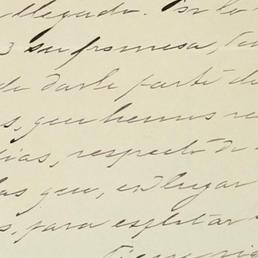 llegado. Por lo
su promesa, de
de darle parte de
s, que hemos re
ias, respecto de
las que, en lugar
s, para explotar